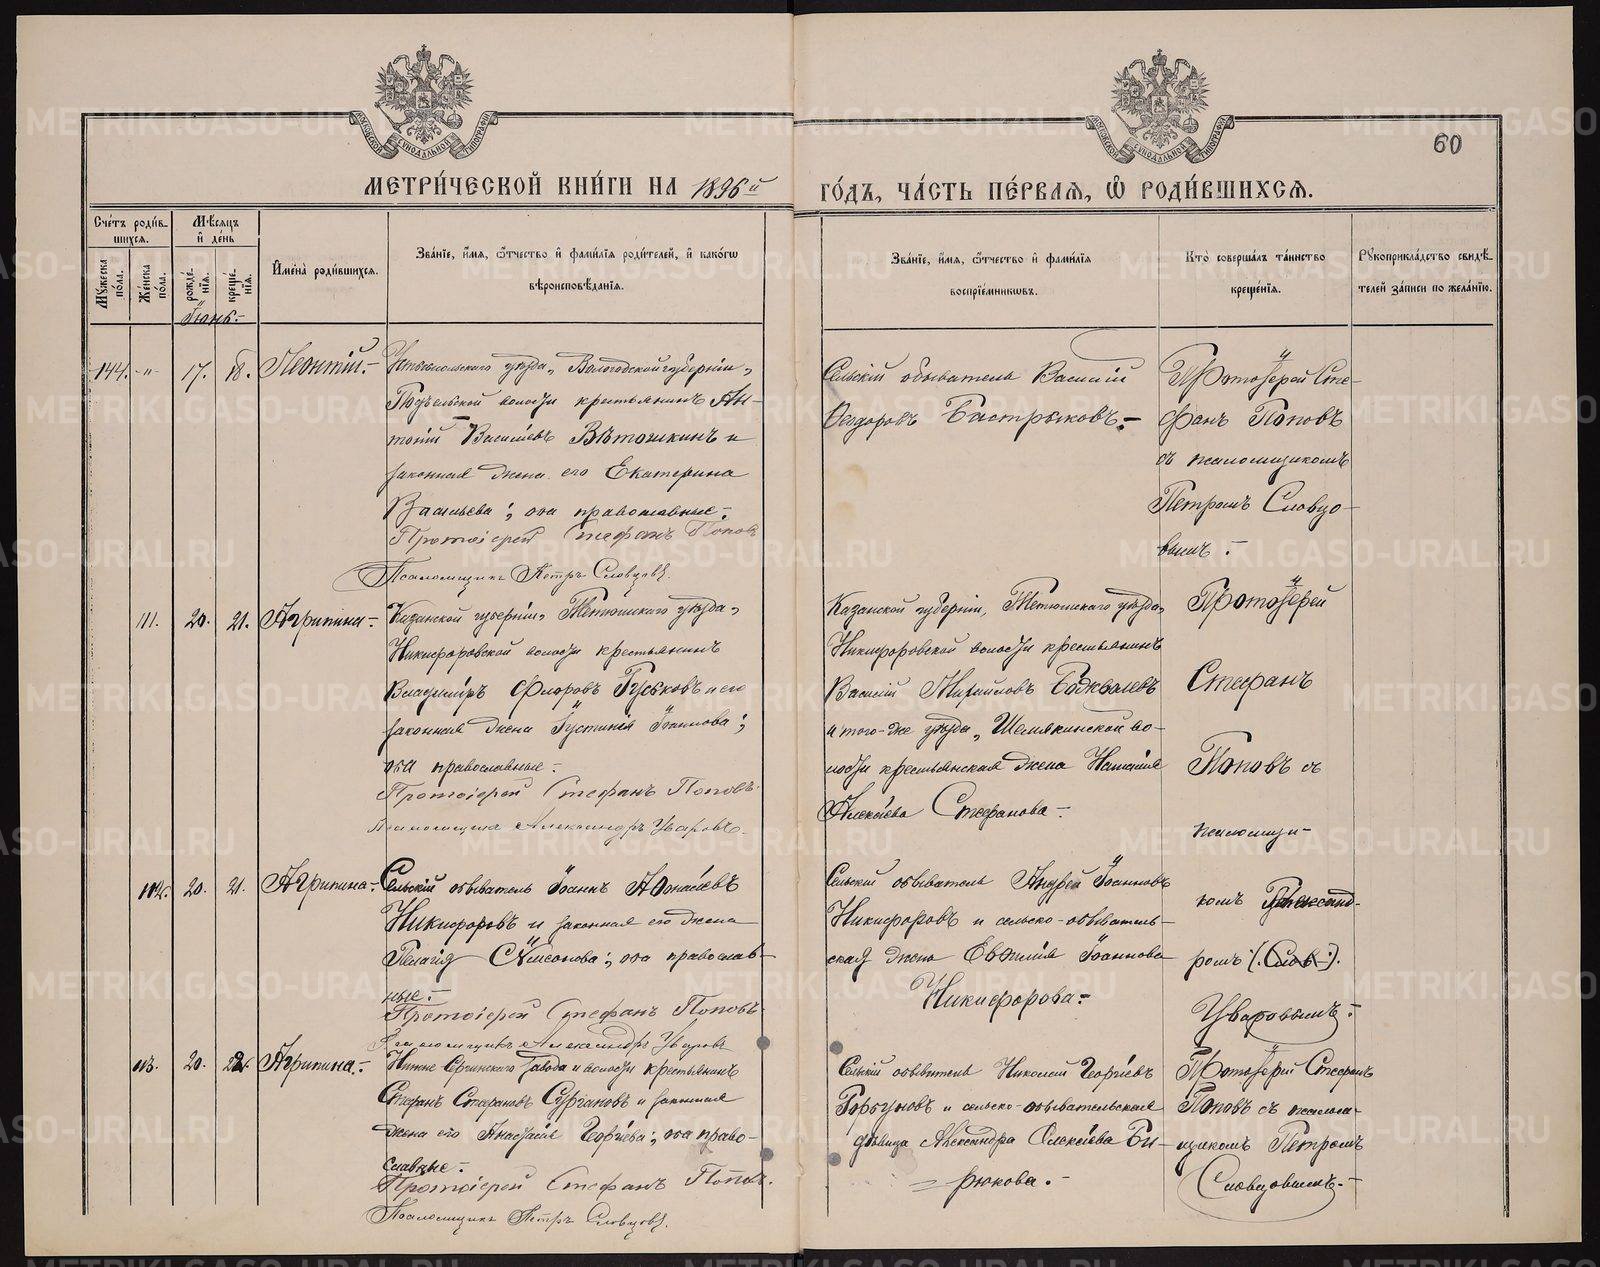 МОСКОВСКОЙ СѴНОДАЛЬНОЙ ТИПОГРАФІИ
МОСКОВСКОЙ СѴНОДАЛЬНОЙ ТИПОГРАФІИ
60
МЕТРИ́ЧЕСКОЙ КНИ́ГИ НА 1896й
ГО́ДЪ, ЧА́СТЬ ПЕ́РВАѦ, Ѽ РОДИ́ВШИХСѦ.
Сче́тъ роди́в-
шихсѧ.
Мꙋ́жеска по́ла.
Же́нска по́ла.
Мѣ́сѧцъ
и҆ де́нь
рожде́нїѧ.
креще́нїѧ.
Имена̀ роди́вшихсѧ.
Зва́нїе, и҆́мѧ, ѻ҆́тчество и҆ фами́лїѧ роди́телей, и҆ како́гѡ
вѣроисповѣ́данїѧ.
Зва́нїе, и҆́мѧ, ѻ҆́тчество и҆ фами́лїѧ
воспрїе́мникѡвъ.
Кто̀ соверша́лъ та́инство
креще́нїѧ.
Рꙋкоприкла́дство свидѣ́-
телей за́писи по жела́нїю.
Іюнь.-
144. -"- 17. 18. Леонтій.-
Вологодской губерніи,
волости крестьянинъ Ан-
тоній Васильевъ Вѣтошкинъ и
законная жена его Екатерина
Васильева; оба православные.-
Протоіерей Стефанъ Поповъ
Псаломщикъ Петръ Словцовъ.
Сельскій обыватель Василій
Ѳеодоровъ Бастрыковъ.-
Протоіерей Сте-
фанъ Поповъ
съ псаломщикомъ
Петромъ Словцо-
вымъ.-
111. 20. 21. Агрипина.-
Казанской губерніи, Тетюшскаго уѣзда,
Никифоровской волости крестьянинъ
Владиміръ Флоровъ Гуськовъ и его
законная жена Іустинія Іоаннова;
оба православные.-
Протоіерей Стефанъ Поповъ.
Псаломщикъ Александръ Уваровъ.
Казанской губерніи, Тетюшскаго уѣзда,
Никифоровской волости крестьянинъ
Василій Михайловъ
и того-же уѣзда, Шемякинской во-
лости крестьянская жена Наталія
Алексіева Стефанова.-
Протоіерей
Стефанъ
Поповъ съ
псаломщи-
комъ Александ-
ромъ
Уваровымъ.-
112. 20. 21. Агрипина.-
Сельскій обыватель Іоаннъ Аѳанасіевъ
Никифоровъ и законная его жена
Пелагія Сѵмеонова; оба православ-
ные.-
Протоіерей Стефанъ Поповъ.
Псаломщикъ Александръ Уваровъ
Сельскій обыватель Андрей Іоанновъ
Никифоровъ и сельско-обыватель-
ская жена Евѳимія Іоаннова
Никифорова.-
113. 20. Агрипина.-
Нижне-Сергинскаго завода и волости крестьянинъ
Стефанъ Стефановъ Сургановъ и законная
жена его Анастасія Георгіева; оба право-
славные.-
Протоіерей Стефанъ Поповъ.
Псаломщикъ Петръ Словцовъ.
Сельскій обыватель Николай Георгіевъ
Горбуновъ и сельско-обывательская
дѣвица Александра Алексіева Би-
рюкова.-
Протоіерей Стефанъ
Поповъ съ псалом-
щикомъ Петромъ
Словцовымъ.-
METRIKI.GASO-URAL.RU